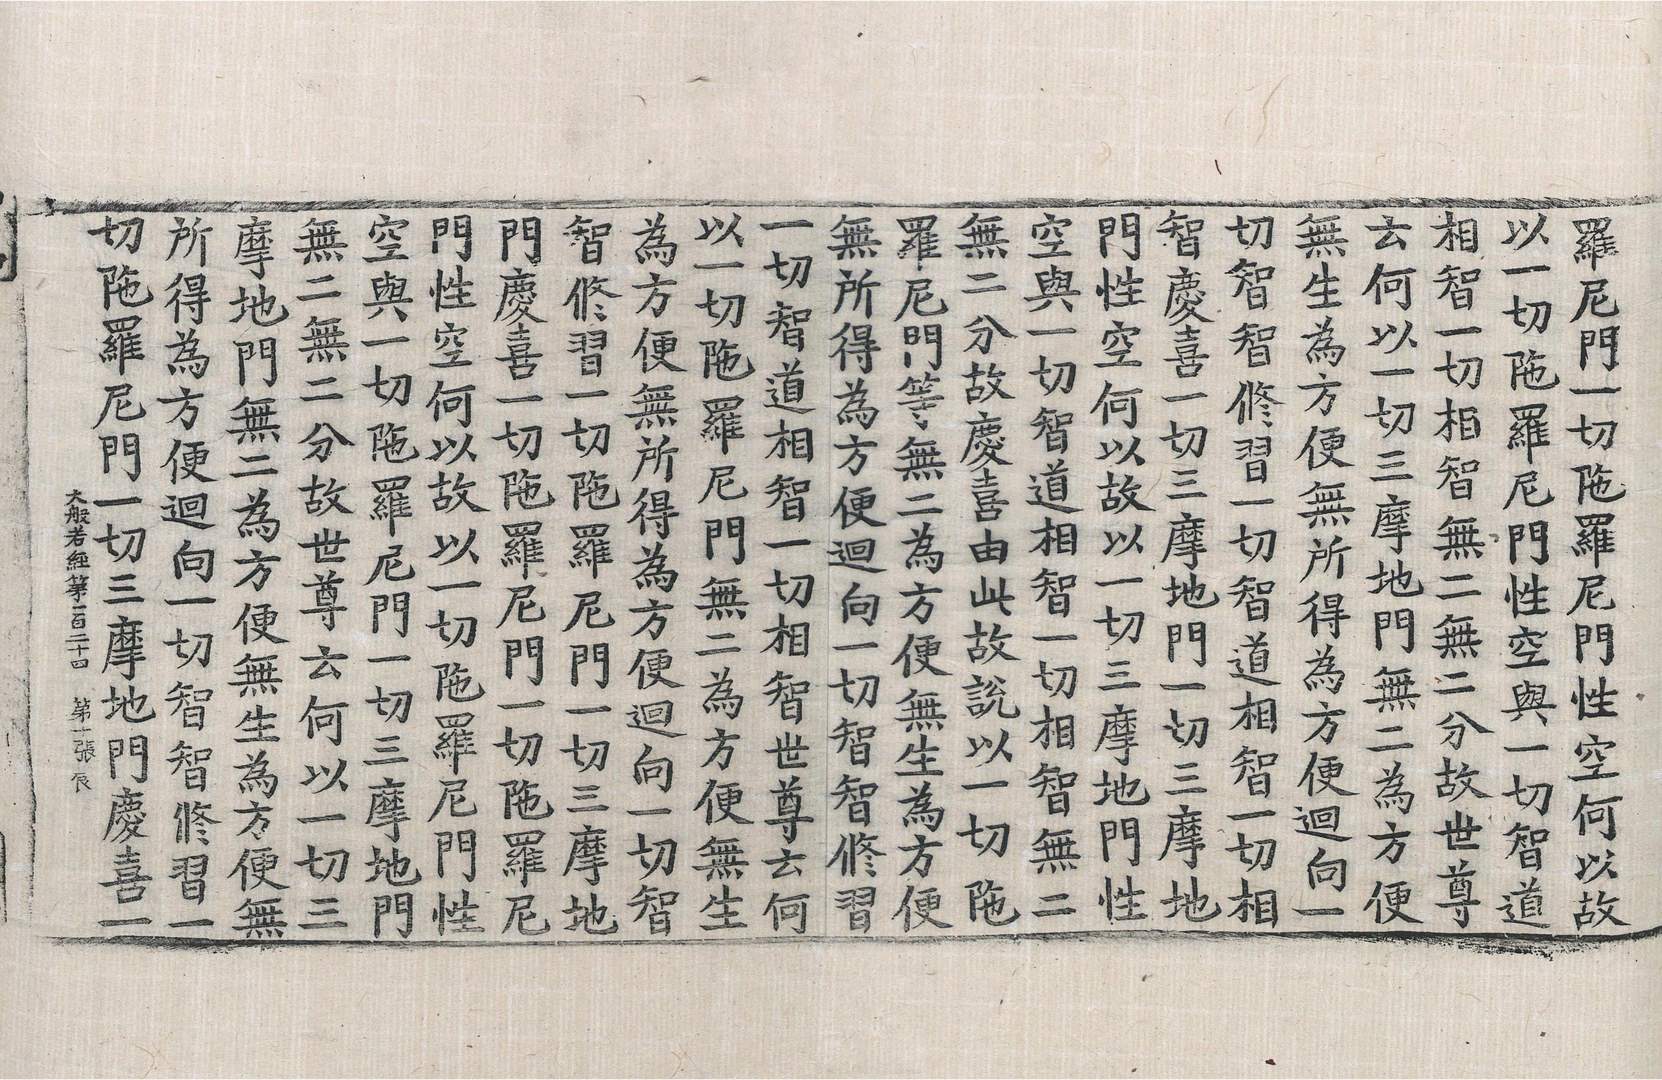 羅尼門一切陁羅尼門性空何以故
以一切陁羅尼門性空與一切智道
相智一切相智無二無二分故世尊
云何以一切三摩地門無二為方便
無生為方便無所得為方便迴向一
切智智修習一切智道相智一切相
智慶喜一切三摩地門一切三摩地
門性空何以故以一切三摩地門性
空與一切智道相智一切相智無二
無二分故慶喜由此故說以一切陁
羅尼門等無二為方便無生為方便
無所得為方便迴向一切智智修習
一切智道相智一切相智世尊云何
以一切陁羅尼門無二為方便無生
為方便無所得為方便迴向一切智
智修習一切陁羅尼門一切三摩地
門慶喜一切陁羅尼門一切陁羅尼
門性空何以故以一切陁羅尼門性
空與一切陁羅尼門一切三摩地門
無二無二分故世尊云何以一切三
摩地門無二為方便無生為方便無
所得為方便迴向一切智智修習一
切陁羅尼門一切三摩地門慶喜一
大般若經第一百二十四 第十張 辰